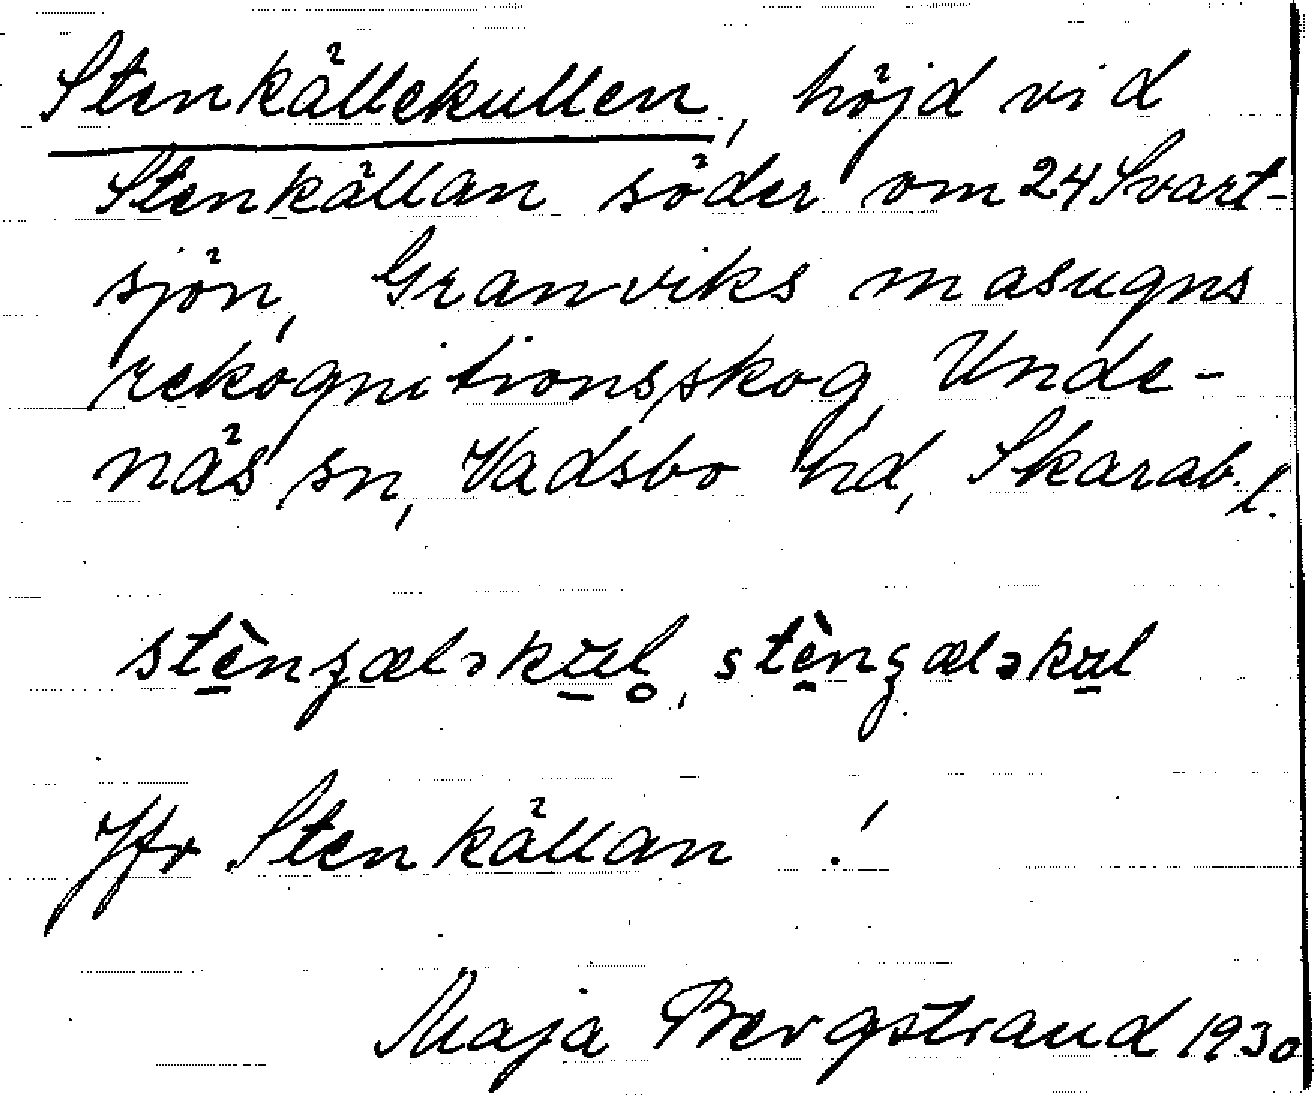 Stenkällekullen, höjd vid
Stenkällan söder om 24 Svart-
sjön, Granviks masugns
rekognitionsskog, Unde-
näs sn, Vadsbo hd, Skarab. l.
stènʒæləkul, stènʒæləkul
Jfr Stenkällan !
Maja Bergstrand 1930